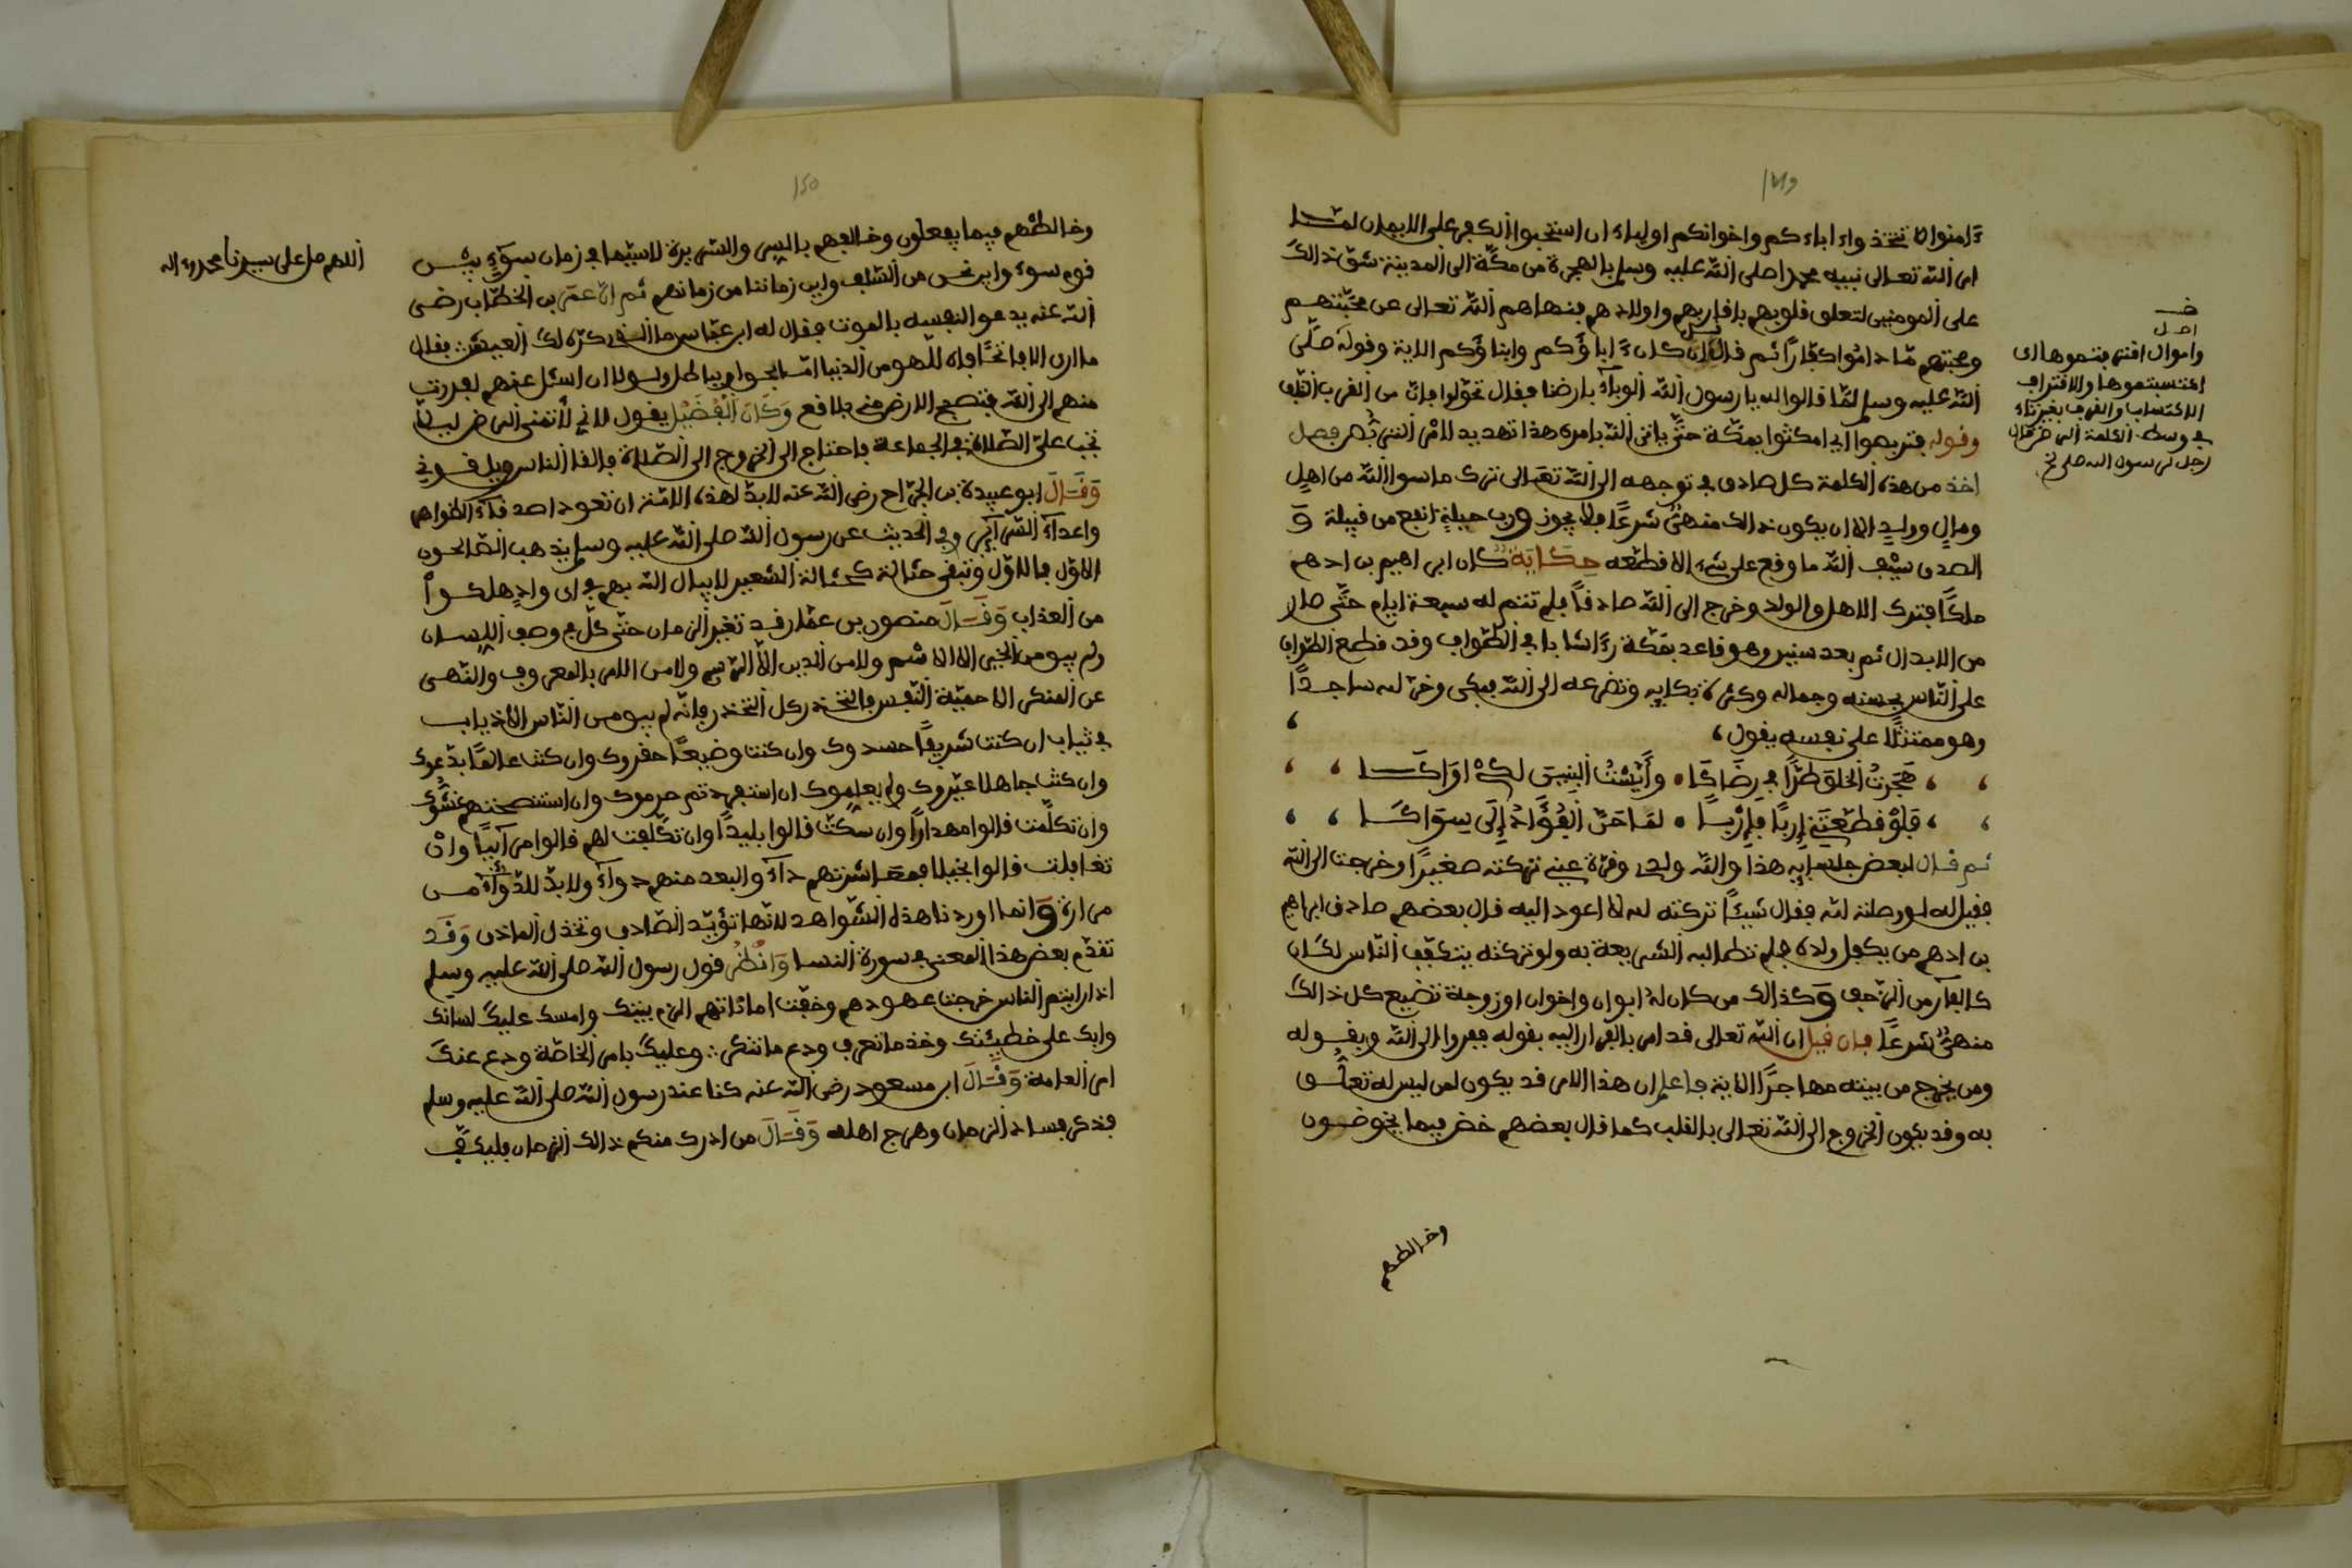 ١٤٩
ءامنوا لا تتخذوا ءاباءكم واخوانكم اولياء ان استحبوا الكفر على الايمان لمّا
امر الله تعالى نبيه محمدا صلى الله عليه وسلم بالهجرة من مكّة الى المدينة شقّ ذالك
على المومنين لتعلق قلوبهم باقاربهم واولادهم فنهاهم الله تعالى عن محبّتهم
وصحبتهم ما داموا كفّارًا ثم قال قل ان كان ءاباؤكم وابناؤكم الاية وقوله صلّى
الله عليه وسلم لمّا قالوا له يا رسول الله الوباء بارضنا فقال تحوّلوا فانّ من القرف التلف
وقوله فتربصوا اي امكثوا بمكّة حتّى ياتي الله بامره هذا تهديد للامر
اخذ من هذه الكلمة كل صادق في توجهه الى الله تعالى ترك ما سوا الله من اهلٍ
ومالٍ وولدٍ الا ان يكون ذالك منهىٌّ شرعًا فلا يجوز ورب حيلةٍ انفع من قبيلة وَ
الصدق سيْف الله ما وقع على شيء الا قطعه حِكَايَة كان ابراهيم بن ادهم
ملكًا فترك الاهل والولد وخرج الى الله صادقًا فلم تتم له سبعة ايام حتّى صار
من الابدال ثم بعد سنين وهو قاعد بمكّة رءا شابا في الطّواف وقد قطع الطّواف
على النّاس بحسنه وجماله وكثرة بكايه وتضرعه الى الله فبكى وخرّ لله ساجدًا
وهو متمثّلا على نفسه يقول،
، ، هَجَرتُ الخلقَ طرًّا في رِضَاكَا • وأَيْتَمْتُ البَنِينَ لكىْ اَرَاكَا ، ،
، ، فَلَوْ قَطّعْتَنِي إِربًا فإِرْبًا • لمَا حَنّ الفُؤَادُ إِلَى سِوَاكَا ، ،
ثم قال لبعض جلسايه هذا والله ولدي وقرّة عيني تركته صغيرًا وخرجت الى الله
فقيل له لو وصلته لله فقال شيئًا تركته لله لا اعود اليه قال بعضهم صادف ابراهيم
بن ادهم من يكفل ولده فلم تطالبه الشريعة به ولو تركته يتكفّف النّاس لكان
كالفآر من الزّحف وَكذالك من كان لهُ ابوان واخوان او زوجة تضيع كل ذالك
منهىٌّ شرعًا فان قيل ان الله تعالى قد امر بالفرار اليه بقوله ففروا الى الله وبقوله
ومن يخرج من بيته مهاجرًا الاية فاعلم ان هذا الامر قد يكون لمن ليس له تعلّق
به وقد يكون الخروج الى الله تعالى بالقلب كما قال بعضهم خض فيما يخوضون
وخالطهم
اصل
واموال اقترفتموها اى
اكتسبتموها والاقتراف
الاكتساب
في وسط الكلمة
رجل لرسول الله صلى
١٥٠
وخالطْهم فيما يفعلون وخالفهم بالسر والسريرة لاسيّما في زمان سوّءٍ بيْن
قوم سوء واين نحن من السّلف واين زماننا من زمانهم ثم انّ عمر بن الخطّاب رضى
الله عنه يدعو لنفسه بالموت فقال له ابن عبّاس ما الذي كرّه لك العيش فقال
منهم الى الله فتصبح الارض مني بلاقع وَكَانَ الْفُضَيْل يقول لاني لأتمنى المرض ليلا
تجب علىّ الصّلاة في الجماعة فاحتاج الى الخروج الى الصّلاة فالقا الناس ويلقوني
وَقَالَ ابو عبيدة بن الجرّاح رضى الله عنه لابدّ لهذه الامّة ان تعود اصدقآء الظواهر
واعدآء السّرآئر وفي الحديث عن رسول الله صلى الله عليه وسلم يذهب الصّالحون
الاوّل فالاوّل وتبقى حثالة كحثالة الشعير لا يبال الله بهم في اى وادٍ هلكواْ
من العذاب وَقَالَ منصور بن عمّار قد تغير الزمان حتّى كلّ في وصفه اللّسان
ولم يبق من الخير الا الاسم ولا من الدين الاّ الرّسم ولا من الامر بالمعروف والنّهى
عن المنكر الا حميّة النّفس فالحذر كل الحذر فانّه لم يبق من النّاس الا ذياب
في ثياب ان كنت شريفًا حسدوك وان كنت وضيعًا حقروك وان كنت عالمًا بدّعوك
وان كنت جاهلا عيّروك ولم يعلموك ان استعهدتم حرموك وان استنصحتهم غشُّوك
وان تكلّمت قالوا مهدارًا وان سكتّ قالوا بليدًا وان تكلّفت لهم قالوا مرآئيًّا وانْ
تغافلت قالوا بخيلا فمعاشرتهم دآء والبعد منهم دوآء ولا بدّ للدّوآء من
مرارة وَانما اوردنا هذه الشّواهد لانّها تؤيّد الصّادق وتخذل الماذق وَقَد
تقدّم بعض هذا المعنى في سورة النسا وَانْظُرْ قول رسول الله صلى الله عليه وسلم
اذا رايتم الناس خرجت عهودهم وخفّت اماناتهم الزم بيتك وامسك عليك لسانك
وابك على خطيئتك وخذ ما تعرف ودع ما تنكر وعليك بامر الخاصّة ودع عنك
امر العامة وَقَالَ ابن مسعود رضى الله عنه كنا عند رسول الله صلى الله عليه وسلم
فذكر فساد الزمان وهرج اهله وَقَالَ من ادرك منكم ذالك الزمان فليكفّ
اللهم صل على سيدنا محمد وءاله